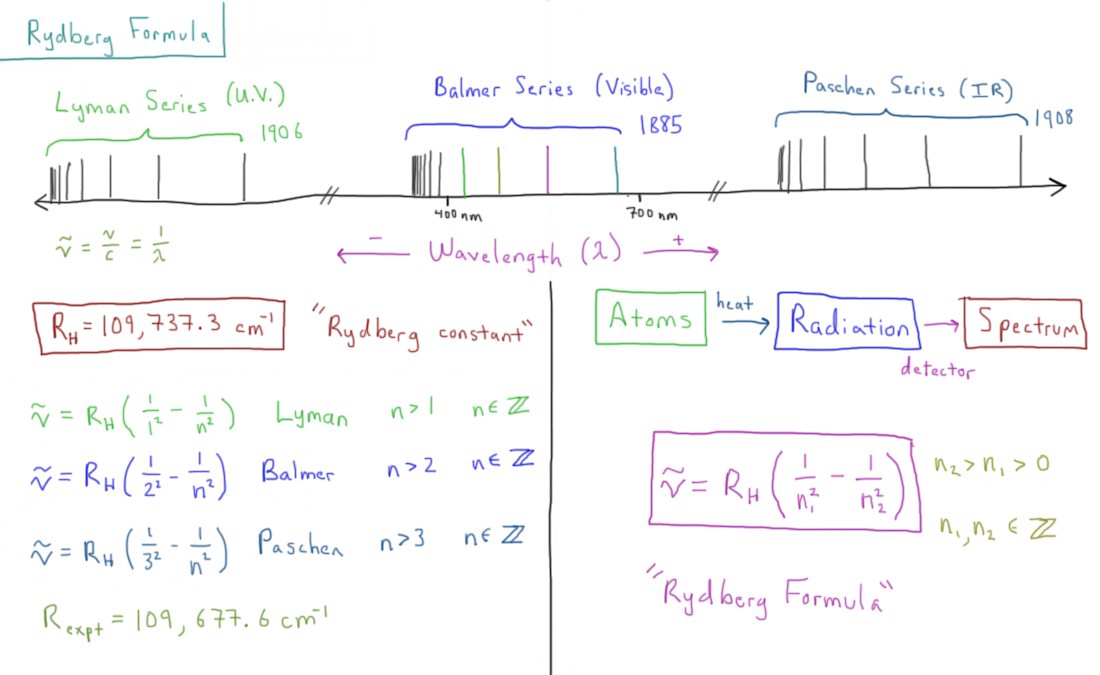 Rydberg Formula
Lyman Series (U.V.)
1906
Balmer Series (Visible)
1885
Paschen Series (IR)
1908
400 nm
700 nm
ṽ = ν/c = 1/λ
− Wavelength (λ) +
R_H = 109,737.3 cm⁻¹
"Rydberg constant"
ṽ = R_H (1/1² − 1/n²) Lyman n>1 n∈ℤ
ṽ = R_H (1/2² − 1/n²) Balmer n>2 n∈ℤ
ṽ = R_H (1/3² − 1/n²) Paschen n>3 n∈ℤ
R_expt = 109,677.6 cm⁻¹
Atoms
heat
Radiation
detector
Spectrum
ṽ = R_H (1/n₁² − 1/n₂²)
n₂ > n₁ > 0
n₁, n₂ ∈ ℤ
"Rydberg Formula"